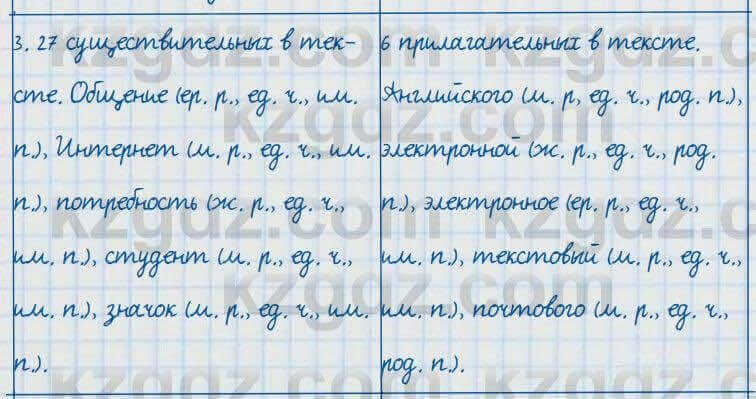 3. 27 существительных в тек-
сте. Общение (ср. р., ед. ч., им.
п.), Интернет (м. р., ед. ч., им.
п.), потребность (ж. р., ед. ч.,
им. п.), студент (м. р., ед. ч.,
им. п.), значок (м. р., ед. ч., им.
п.).
6 прилагательных в тексте.
Английского (м. р, ед. ч., род. п.),
электронной (ж. р., ед. ч., род.
п.), электронное (ср. р., ед. ч.,
им. п.), текстовый (м. р., ед. ч.,
им. п.), почтового (м. р., ед. ч.,
род. п.).
kzgdz.com
kzgdz.com
kzgdz.com
kzgdz.com